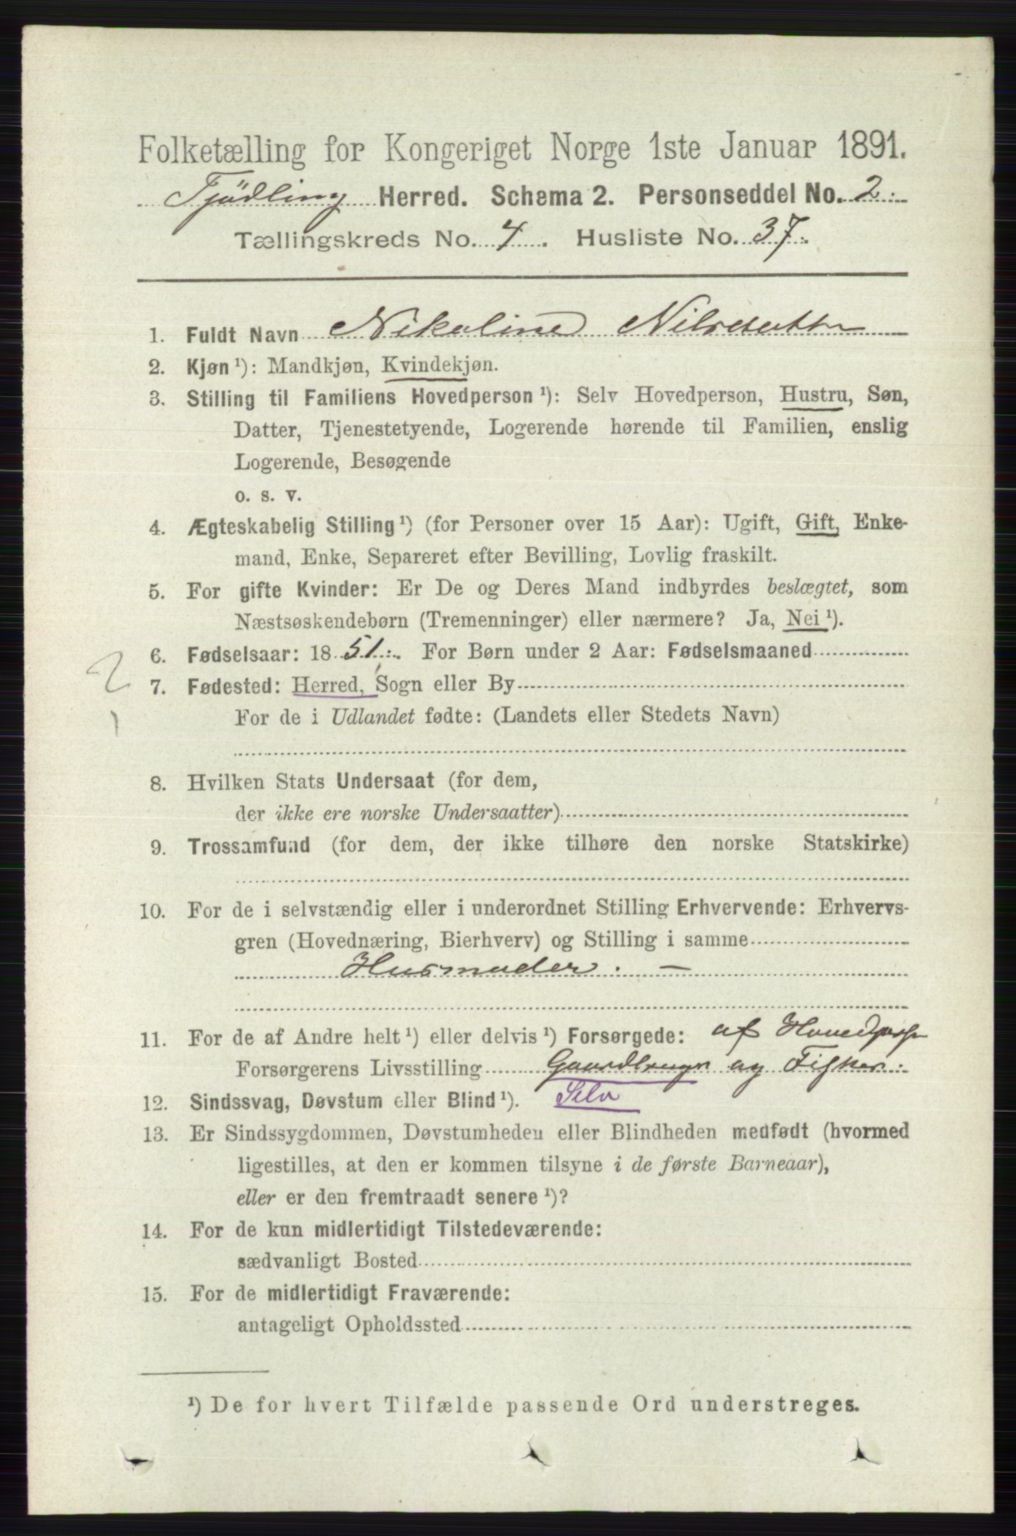 Folketælling for Kongeriget Norge 1ste Januar 1891.
Tjødling Herred. Schema 2. Personseddel No. 2.
Tællingskreds No. 4. Husliste No. 37.
1. Fuldt Navn Nikoline Nilsdatter
2. Kjøn ¹): Mandkjøn, Kvindekjøn.
3. Stilling til Familiens Hovedperson ¹): Selv Hovedperson, Hustru, Søn,
Datter, Tjenestetyende, Logerende hørende til Familien, enslig
Logerende, Besøgende
o. s. v.
4. Ægteskabelig Stilling ¹) (for Personer over 15 Aar): Ugift, Gift, Enke-
mand, Enke, Separeret efter Bevilling, Lovlig fraskilt.
5. For gifte Kvinder: Er De og Deres Mand indbyrdes beslægtet, som
Næstsøskendebørn (Tremenninger) eller nærmere? Ja, Nei ¹).
6. Fødselsaar: 1851. For Børn under 2 Aar: Fødselsmaaned
2
7. Fødested: Herred, Sogn eller By
1
For de i Udlandet fødte: (Landets eller Stedets Navn)
8. Hvilken Stats Undersaat (for dem,
der ikke ere norske Undersaatter)
9. Trossamfund (for dem, der ikke tilhøre den norske Statskirke)
10. For de i selvstændig eller i underordnet Stilling Erhvervende: Erhvervs-
gren (Hovednæring, Bierhverv) og Stilling i samme
Husmoder. —
11. For de af Andre helt ¹) eller delvis ¹) Forsørgede: af Hovedpersn
Forsørgerens Livsstilling Gaardbruger og Fisker.
12. Sindssvag, Døvstum eller Blind ¹). Selv
13. Er Sindssygdommen, Døvstumheden eller Blindheden medfødt (hvormed
ligestilles, at den er kommen tilsyne i de første Barneaar),
eller er den fremtraadt senere ¹)?
14. For de kun midlertidigt Tilstedeværende:
sædvanligt Bosted
15. For de midlertidigt Fraværende:
antageligt Opholdssted
¹) De for hvert Tilfælde passende Ord understreges.